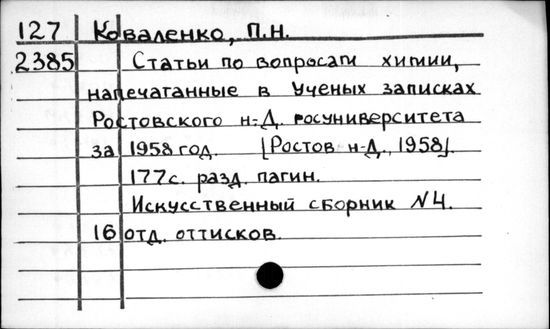 127 Коваленко, П.Н.
2385 Статьи по вопросам химии,
напечатанные в Ученых записках
Ростовского н-Д. госуниверситета
за 1958 год. [Ростов н-Д., 1958].
177с. разд. пагин.
Искусственный сборник №4.
16 отд. оттисков.